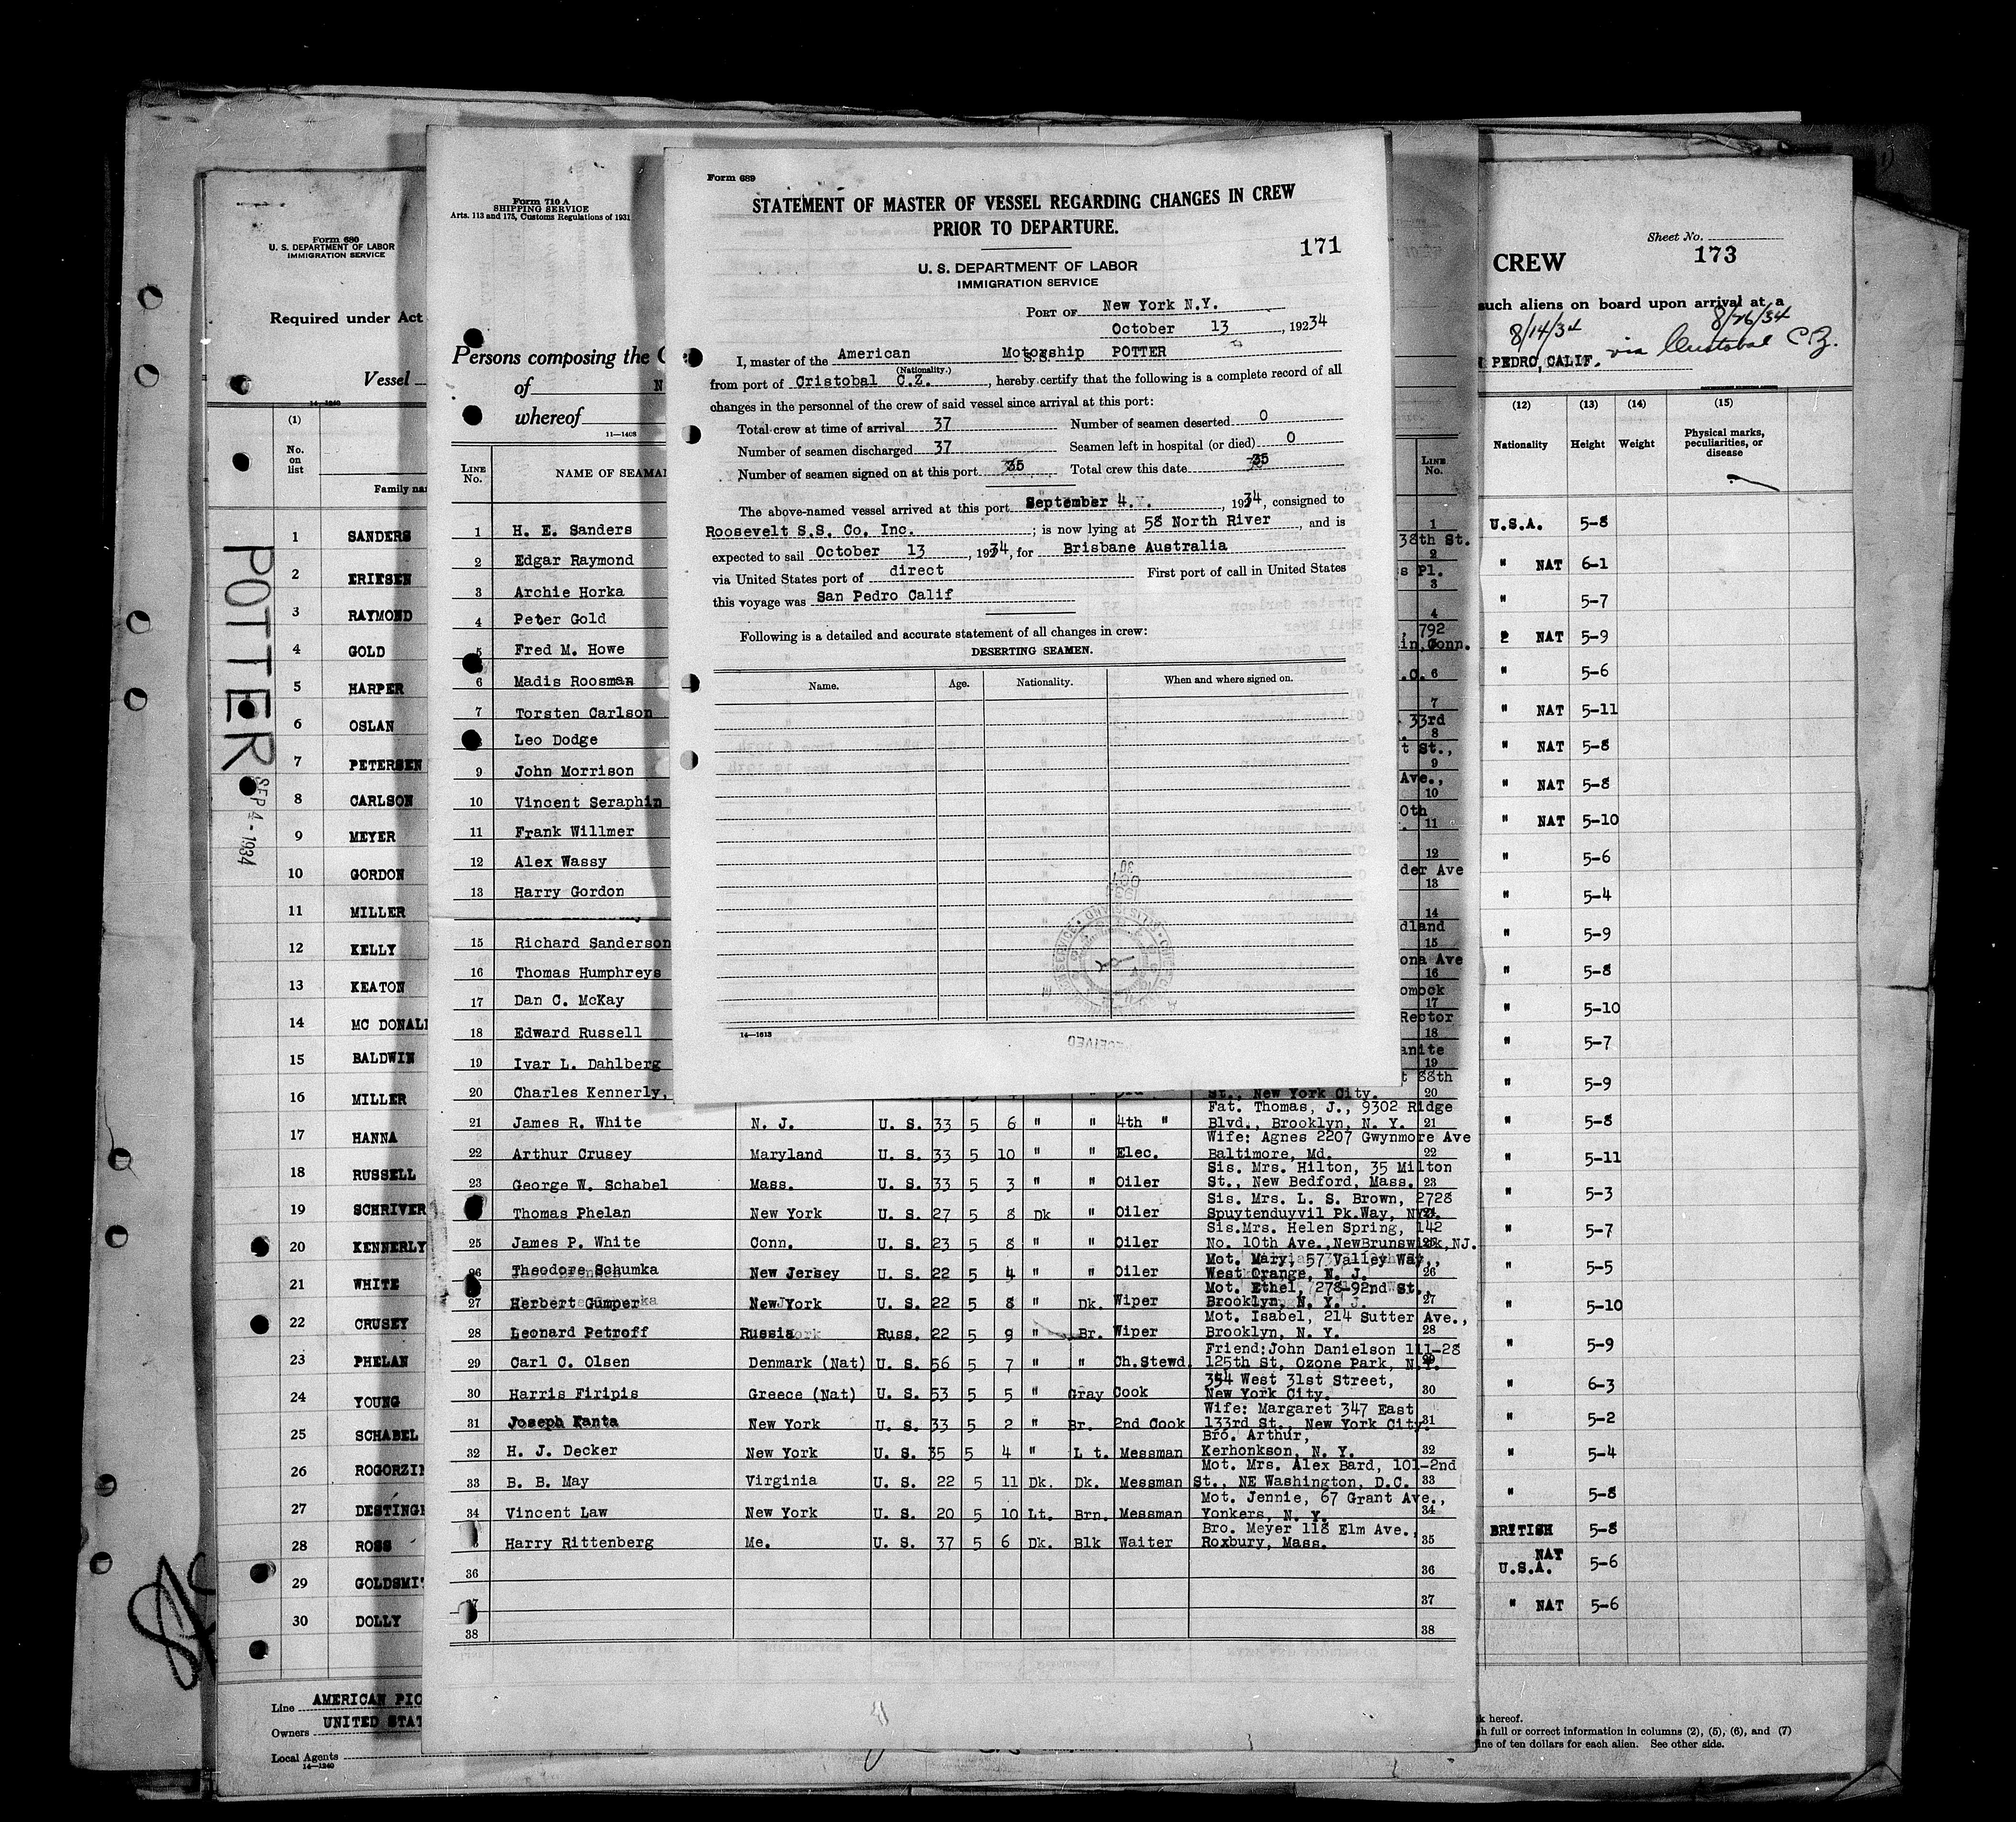 Form 689
STATEMENT OF MASTER OF VESSEL REGARDING CHANGES IN CREW
PRIOR TO DEPARTURE.
171
U. S. DEPARTMENT OF LABOR
IMMIGRATION SERVICE
PORT OF New York N.Y.
October 13, 1934
I, master of the American S.S. Motorship POTTER
(Nationality.)
from port of Cristobal C.Z., hereby certify that the following is a complete record of all
changes in the personnel of the crew of said vessel since arrival at this port:
Total crew at time of arrival 37 Number of seamen deserted 0
Number of seamen discharged 37 Seamen left in hospital (or died) 0
Number of seamen signed on at this port 35 Total crew this date 35
The above-named vessel arrived at this port September 4., 1934, consigned to
Roosevelt S.S. Co. Inc.; is now lying at 58 North River, and is
expected to sail October 13, 1934, for Brisbane Australia
via United States port of direct First port of call in United States
this voyage was San Pedro Calif
Following is a detailed and accurate statement of all changes in crew:
DESERTING SEAMEN.
Name. Age. Nationality. When and where signed on.
14—1613
Form 710 A
SHIPPING SERVICE
Arts. 113 and 175, Customs Regulations of 1931
Persons composing the C
of N
whereof
11—1408
LINE No. NAME OF SEAMA LINE No.
1 H. E. Sanders 1
38th St.
2 Edgar Raymond 2
s Pl.
3 Archie Horka 3
4 Peter Gold 4
, 792
5 Fred M. Howe in, Conn.
6 Madis Roosman .C. 6
7 Torsten Carlson 7
33rd
Leo Dodge 8
t St.,
9 John Morrison 9
Ave.,
10 Vincent Seraphin 10
0th
11 Frank Willmer 11
12 Alex Wassy 12
der Ave
13 Harry Gordon 13
14
dland
15 Richard Sanderson 15
ona Ave
16 Thomas Humphreys 16
omock
17 Dan C. McKay 17
Rector
18 Edward Russell 18
anite
19 Ivar L. Dahlberg 19
t 88th
20 Charles Kennerly, St., New York City. 20
Fat. Thomas, J., 9302 Ridge
21 James R. White N. J. U. S. 33 5 6 " " 4th " Blvd., Brooklyn, N. Y. 21
Wife: Agnes 2207 Gwynmore Ave
22 Arthur Crusey Maryland U. S. 33 5 10 " " Elec. Baltimore, Md. 22
Sis. Mrs. Hilton, 35 Milton
23 George W. Schabel Mass. U. S. 33 5 3 " " Oiler St., New Bedford, Mass. 23
Sis. Mrs. L. S. Brown, 2728
Thomas Phelan New York U. S. 27 5 8 Dk " Oiler Spuytenduyvil Pk.Way, NYC.
Sis.Mrs. Helen Spring, 142
25 James P. White Conn. U. S. 23 5 8 " " Oiler No. 10th Ave.,NewBrunswick,NJ.
Mot. Mary, 57 Valley Way,
26 Theodore Schumka New Jersey U. S. 22 5 4 " " Oiler West Orange, N. J. 26
Mot. Ethel, 278-92nd St.,
27 Herbert Gumper New York U. S. 22 5 8 " Dk. Wiper Brooklyn, N. Y. 27
Mot. Isabel, 214 Sutter Ave.,
28 Leonard Petroff Russia Russ. 22 5 9 " Br. Wiper Brooklyn, N. Y. 28
Friend:John Danielson 111-28
29 Carl C. Olsen Denmark (Nat) U. S. 56 5 7 " " Ch.Stewd. 125th St, Ozone Park, N.Y.
354 West 31st Street,
30 Harris Firipis Greece (Nat) U. S. 53 5 5 " Gray Cook New York City. 30
Wife: Margaret 347 East
31 Joseph Kanta New York U. S. 33 5 2 " Br. 2nd Cook 133rd St., New York City 31
Bro. Arthur,
32 H. J. Decker New York U. S. 35 5 4 " L t. Messman Kerhonkson, N. Y. 32
Mot. Mrs. Alex Bard, 101-2nd
33 B. B. May Virginia U. S. 22 5 11 Dk. Dk. Messman St., NE Washington, D.C. 33
Mot. Jennie, 67 Grant Ave.,
34 Vincent Law New York U. S. 20 5 10 Lt. Brn. Messman Yonkers, N. Y. 34
Bro. Meyer 118 Elm Ave.,
Harry Rittenberg Me. U. S. 37 5 6 Dk. Blk Waiter Roxbury, Mass. 35
36 36
37
38 38
Form 680
U. S. DEPARTMENT OF LABOR
IMMIGRATION SERVICE
Required under Act
Vessel
14—1240
(1)
No. on list
Family na
POTTER
SEP 4 - 1934
1 SANDERS
2 ERIKSEN
3 RAYMOND
4 GOLD
5 HARPER
6 OSLAN
7 PETERSEN
8 CARLSON
9 MEYER
10 GORDON
11 MILLER
12 KELLY
13 KEATON
14 MC DONAL
15 BALDWIN
16 MILLER
17 HANNA
18 RUSSELL
19 SCHRIVER
20 KENNERLY
21 WHITE
22 CRUSEY
23 PHELAN
24 YOUNG
25 SCHABEL
26 ROGORZI
27 DESTING
28 ROSS
29 GOLDSMI
30 DOLLY
Line AMERICAN PIO
Owners UNITED STAT
Local Agents
14—1240
Sheet No.
CREW 173
such aliens on board upon arrival at a
8/14/34 8/26/34
PEDRO, CALIF. via Cristobal C.Z.
(12) (13) (14) (15)
Nationality Height Weight Physical marks, peculiarities, or disease
U.S.A. 5-8
" NAT 6-1
" 5-7
" NAT 5-9
" 5-6
" NAT 5-11
" NAT 5-8
" NAT 5-8
" NAT 5-10
" 5-6
" 5-4
" 5-9
" 5-8
" 5-10
" 5-7
" 5-9
" 5-8
" 5-11
" 5-3
" 5-7
" 5-5
" 5-10
" 5-9
" 6-3
" 5-2
" 5-4
" 5-8
BRITISH 5-8
NAT
U.S.A. 5-6
" NAT 5-6
k hereof.
h full or correct information in columns (2), (5), (6), and (7)
ine of ten dollars for each alien. See other side.